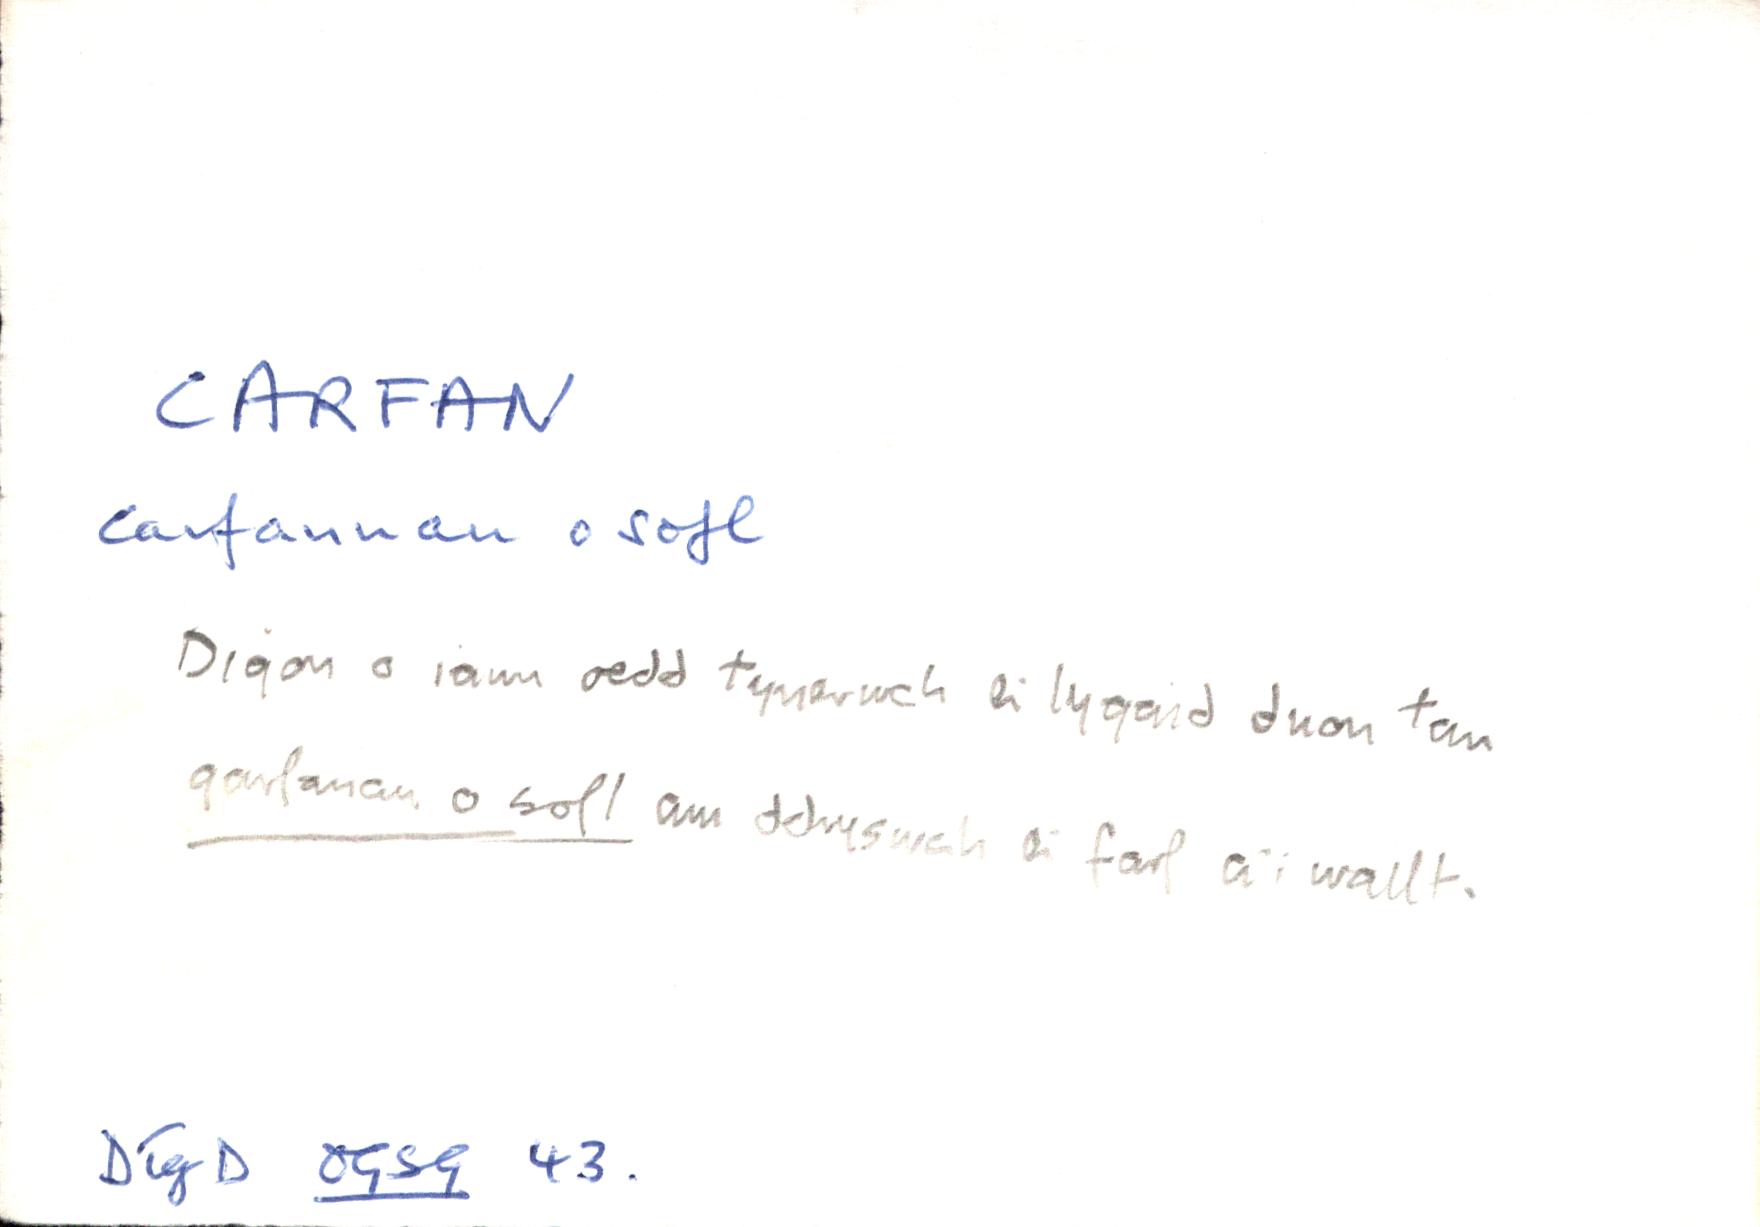 CARFAN
carfannau o sofl
Digon o iawn oedd tynerwch ei lygaid duon tan
garfanau o sofl am ddryswch ei farf a'i wallt.
DIgD OGSG 43.